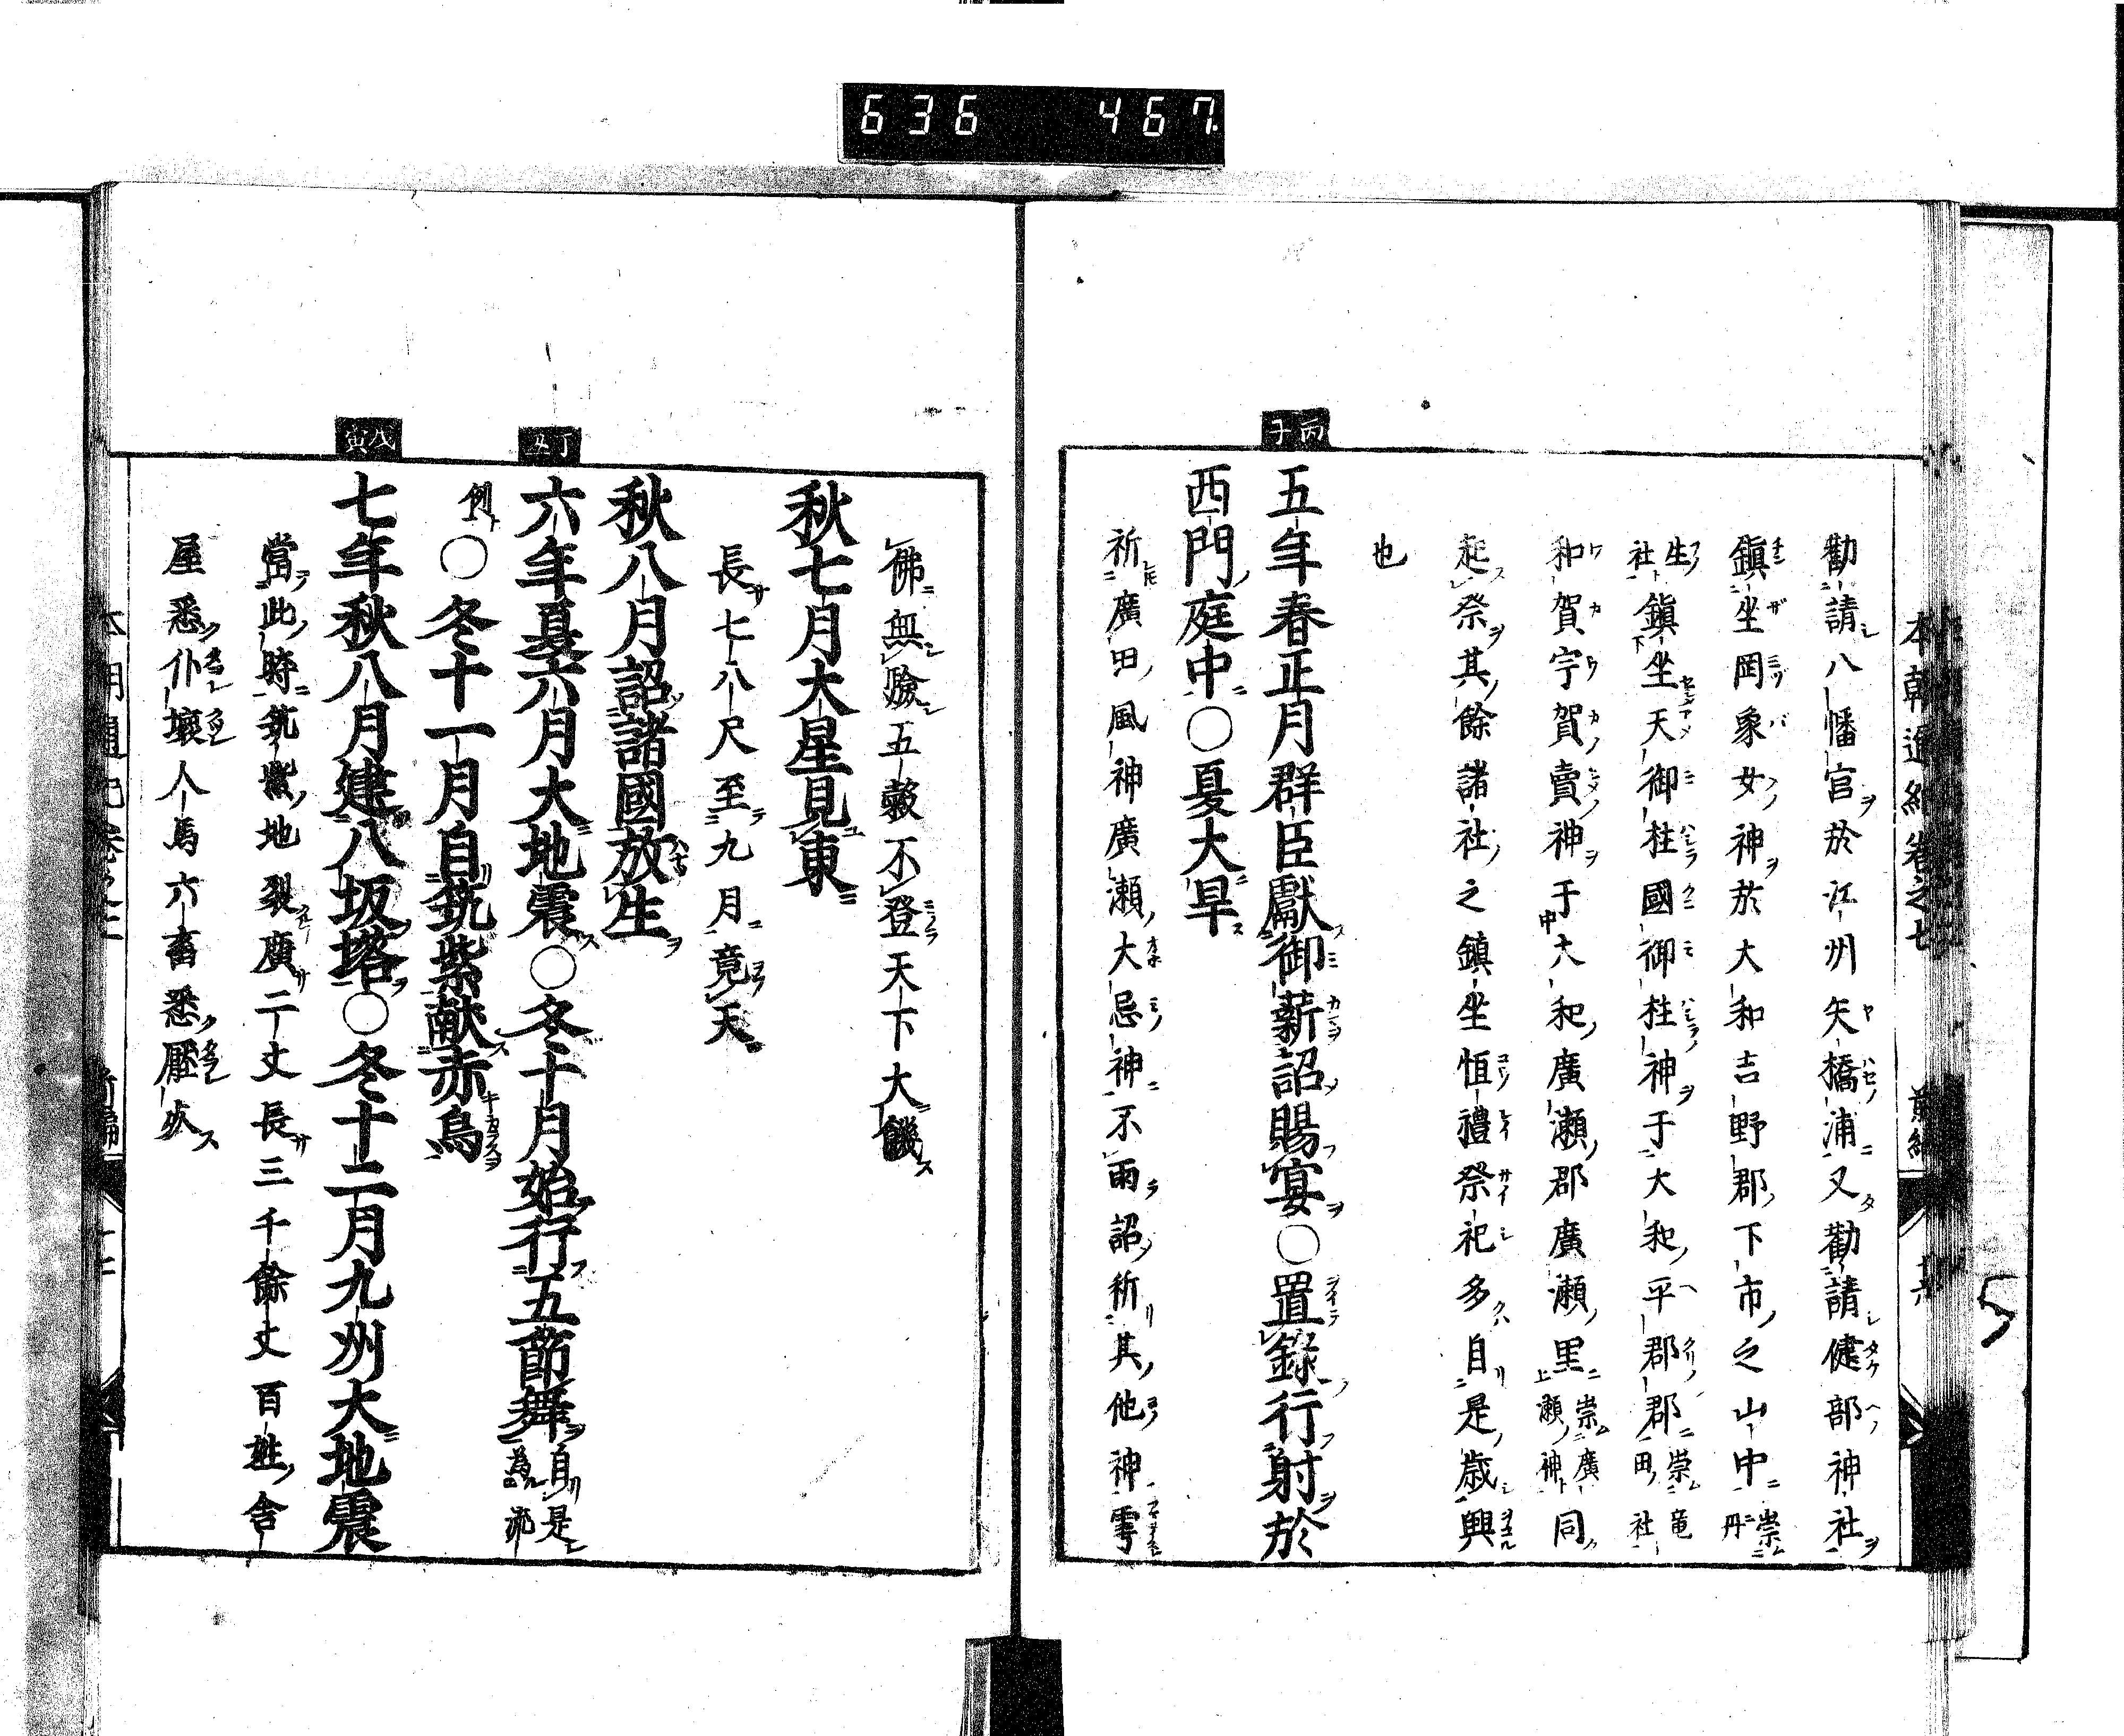 636 467
本朝通紀卷之七 前編 十六
勸請八幡宮於江州矢橋浦又勸請健部神社
鎭坐罔象女神於大和吉野郡下市之山中崇丹
生社鎭坐天御柱國御柱神于大和平郡郡崇竜田社
和賀宇賀賣神于大和廣瀬郡廣瀬里崇廣瀬神同
起祭其餘諸社之鎮坐恒禮祭祀多自是歳興
也
丙子
五年春正月群臣獻御薪詔賜宴〇置錄行射於
西門庭中〇夏大旱
祈廣田風神廣瀬大忌神不雨詔祈其他神雩
佛無驗五穀不登天下大饑
秋七月大星見東
長七八尺至九月竟天
秋八月詔諸國放生
丁丑
六年夏六月大地震〇冬十月始行五節舞自是為流
例〇冬十一月自筑紫献赤烏
戊寅
七年秋八月建八坂塔〇冬十二月九州大地震
當此時筑紫地裂廣二丈長三千餘丈百姓舎
屋悉仆壞人馬六畜悉壓
5